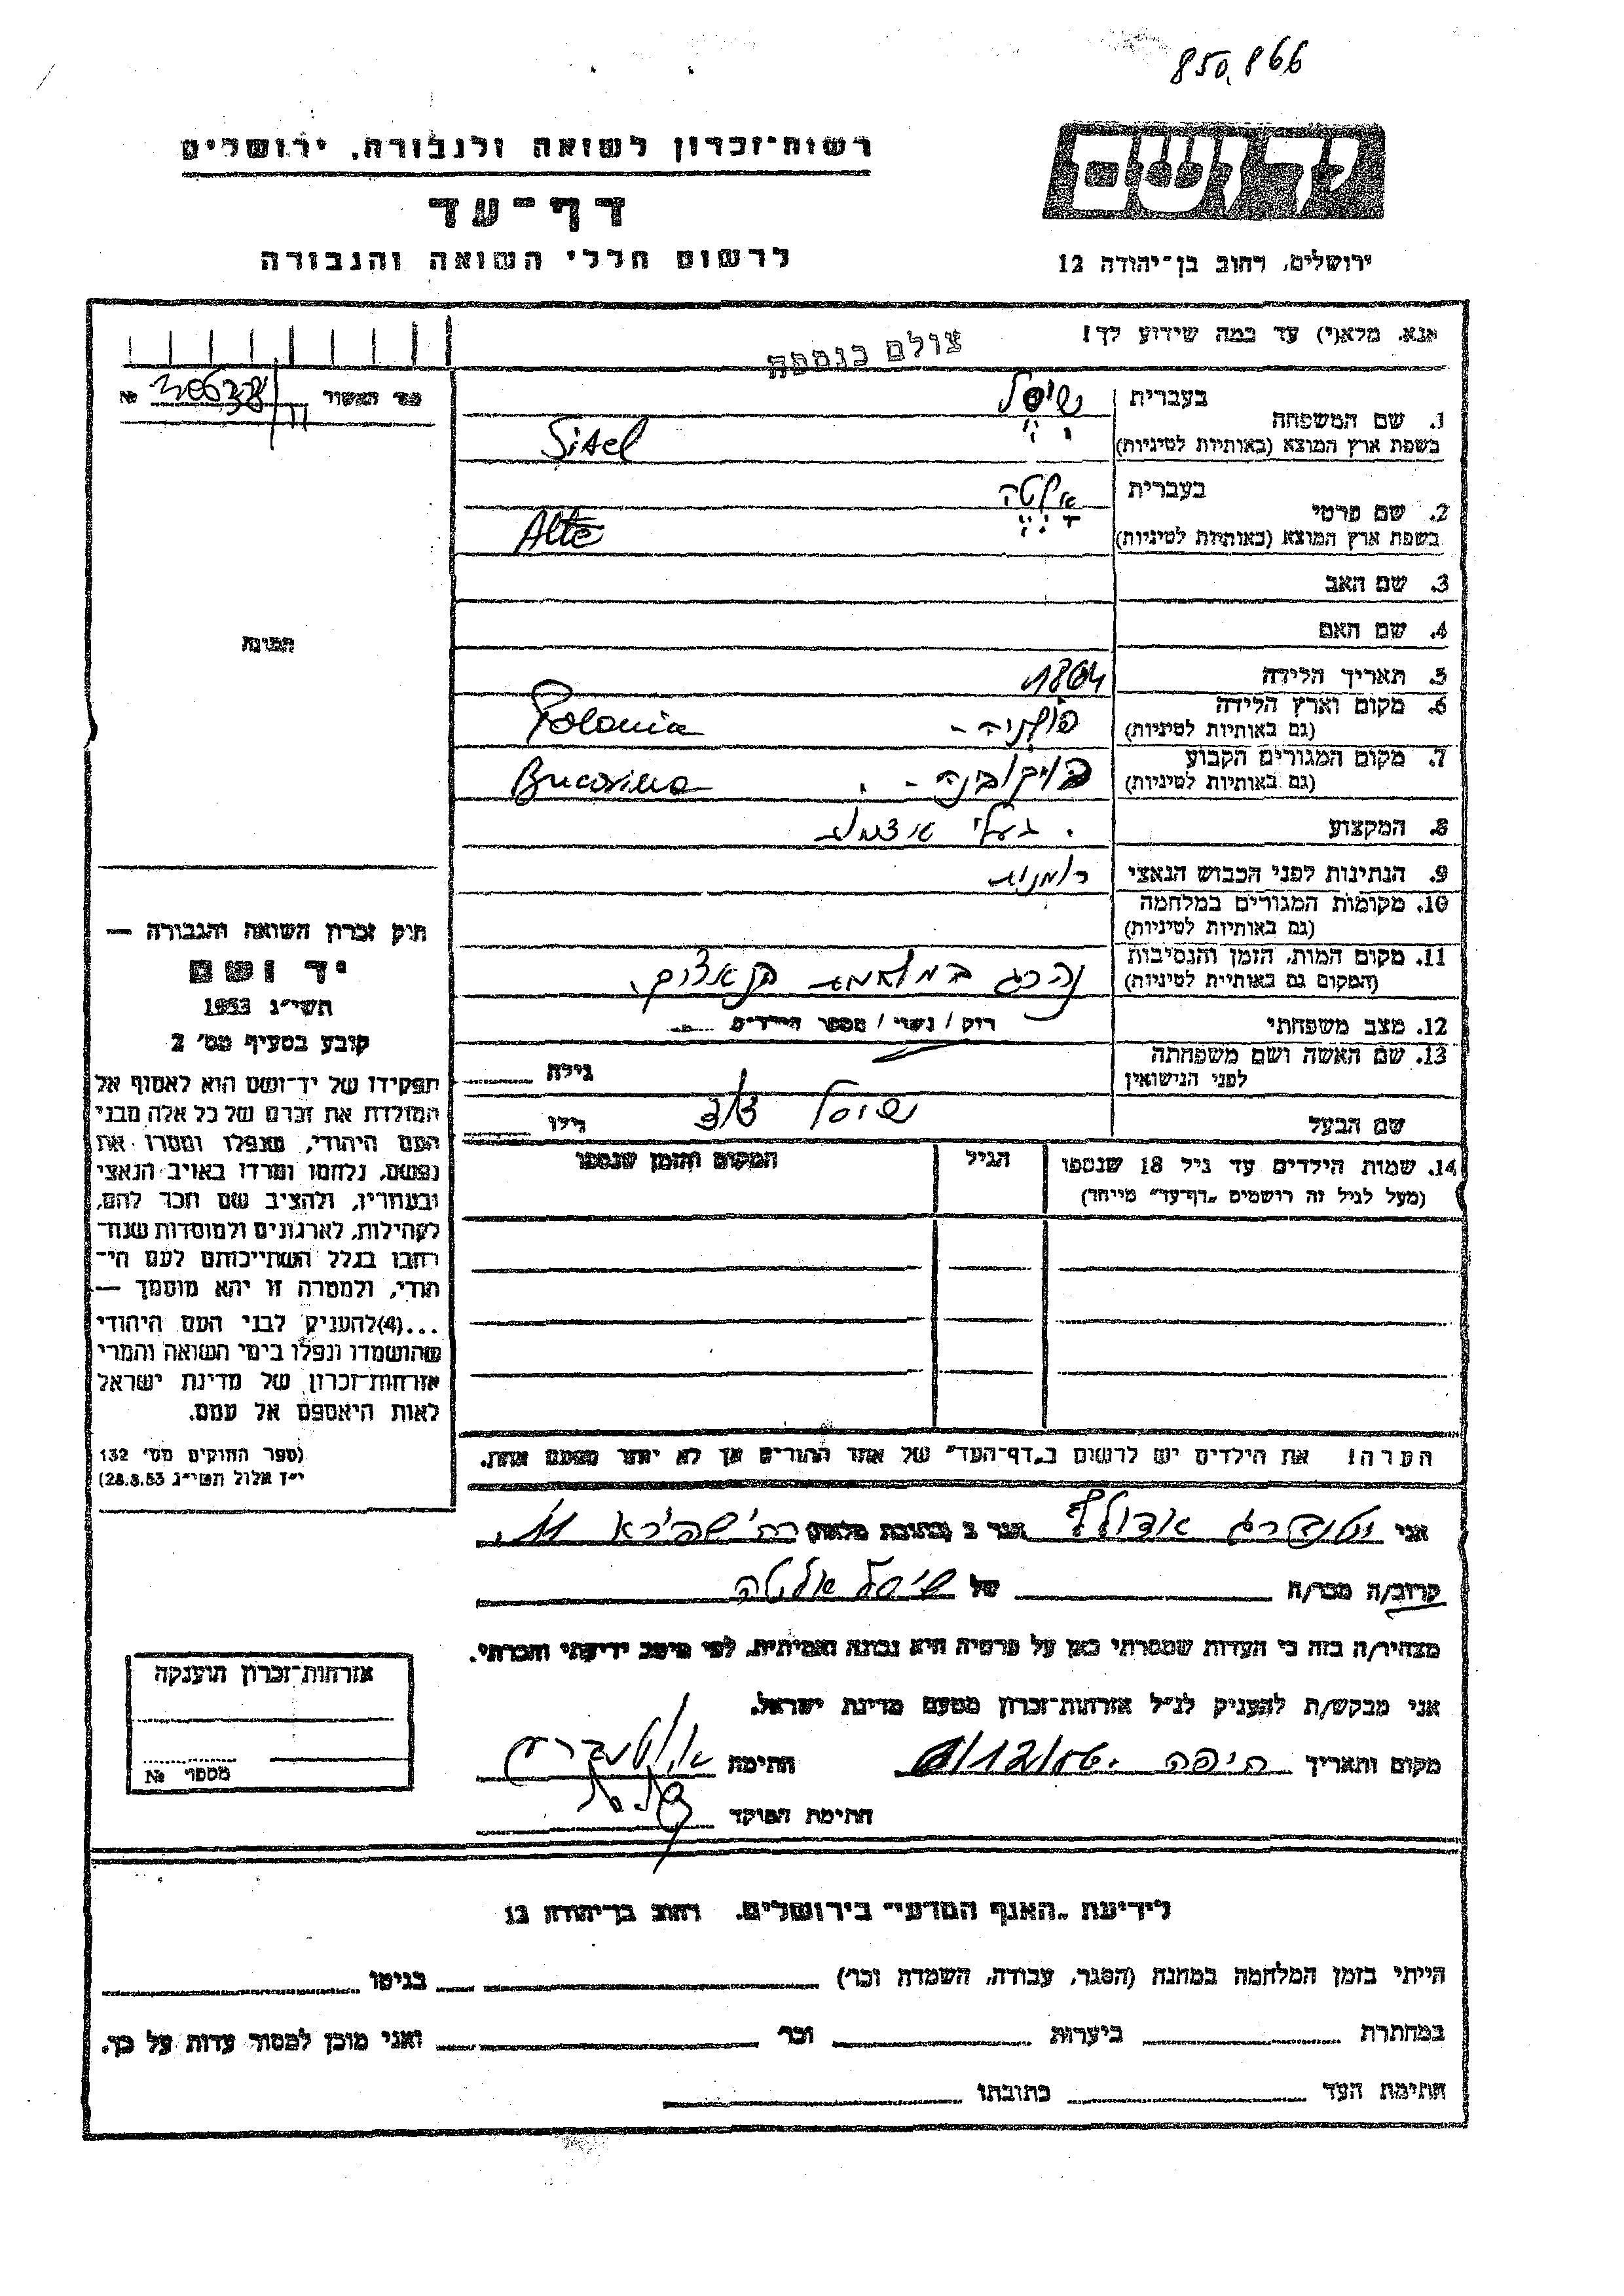 850,866
רשות־זכרון לשואה ולגבורה, ירושלים
דף־עד
לרשום חללי השואה והגבורה
יד ושם
ירושלים, רחוב בן־יהודה 12
אנא, מלא(י) עד כמה שידוע לך!
צולם בנספח
מס׳ האשור №
בעברית שיסל
1. שם המשפחה
בשפת ארץ המוצא (באותיות לטיניות) Sisel
בעברית אלטה
2. שם פרטי
בשפת ארץ המוצא (באותיות לטיניות) Alte
3. שם האב
4. שם האם
5. תאריך הלידה 1864
6. מקום וארץ הלידה
(גם באותיות לטיניות) פולניה - Polonia
7. מקום המגורים הקבוע
(גם באותיות לטיניות) בוקובינה - Bucovina
8. המקצוע
9. הנתינות לפני הכבוש הנאצי רומנית
10. מקומות המגורים במלחמה
(גם באותיות לטיניות)
11. מקום המות, הזמן והנסיבות
(המקום גם באותיות לטיניות) נהרג במלחמת הנאצים.
12. מצב משפחתי רוק / נשוי / מספר הילדים
13. שם האשה ושם משפחתה
לפני הנישואין גילה
שם הבעל שיסל דוד גילו
14. שמות הילדים עד גיל 18 שנספו
(מעל לגיל זה רושמים „דף־עד״ מיוחד)
הגיל
המקום והזמן שנספו
הערה! את הילדים יש לרשום ב„דף־העד״ של אחד ההורים אך לא יותר מפעם אחת.
התמונה
חוק זכרון השואה והגבורה —
יד ושם
תשי״ג 1953
קובע בסעיף מס׳ 2
תפקידו של יד־ושם הוא לאסוף אל
המולדת את זכרם של כל אלה מבני
העם היהודי, שנפלו ומסרו את
נפשם, נלחמו ומרדו באויב הנאצי
ובעוזריו, ולהציב שם וזכר להם,
לקהילות, לארגונים ולמוסדות שנח־
רבו בגלל השתייכותם לעם הי־
הודי, ולמטרה זו יהא מוסמך —
...(4) להעניק לבני העם היהודי
שהושמדו ונפלו בימי השואה והמרי
אזרחות־זכרון של מדינת ישראל
לאות היאספם אל עמם.
(ספר החוקים מס׳ 132
י״ז אלול תשי״ג 28.8.53)
אני אדולף הגר ב (כתובת מלאה)
קרוב/ה מכר/ה של שיסל אלטה
מצהיר/ה בזה כי העדות שמסרתי כאן על פרטיה היא נכונה ואמיתית, לפי מיטב ידיעתי והכרתי.
אני מבקש/ת להעניק לנ״ל אזרחות־זכרון מטעם מדינת ישראל.
מקום ותאריך חיפה חתימה
חתימת הפוקד
אזרחות־זכרון הוענקה
מספר №
לידיעת „האגף המדעי״ בירושלים. רחוב בן־יהודה 12
הייתי בזמן המלחמה במחנה (הסגר, עבודה, השמדה וכו׳) בגיטו
במחתרת ביערות וכו׳ ואני מוכן למסור עדות על כך.
חתימת העד כתובתו